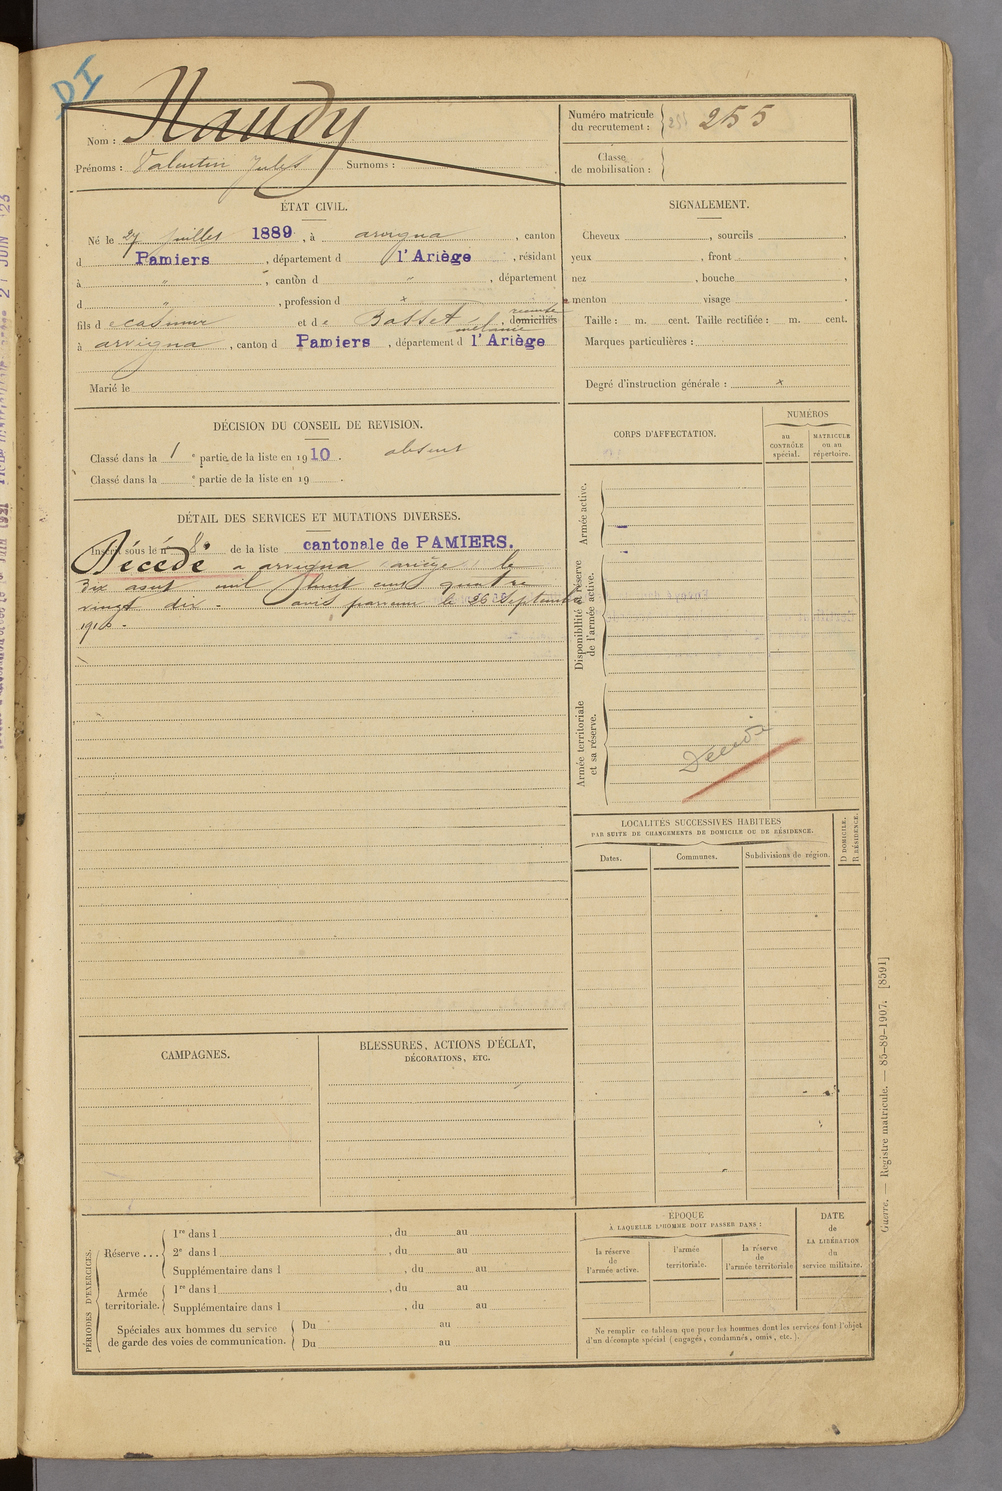 DI
Nom : Naudy
Prénoms : Valentin Jules Surnoms :
Numéro matricule
du recrutement : 255
Classe
de mobilisation :
ÉTAT CIVIL.
Né le 27 juillet 1889, à arvigna, canton
d Pamiers, département d l'Ariège, résidant
à " , canton d " , département
d " , profession d x
fils de casimir et de Basset mélanie, domiciliés
à arvigna, canton d Pamiers, département d l'Ariège
Marié le
SIGNALEMENT.
Cheveux , sourcils ,
yeux , front ,
nez , bouche ,
menton visage .
Taille : m. cent. Taille rectifiée : m. cent.
Marques particulières :
Degré d'instruction générale : x
DÉCISION DU CONSEIL DE REVISION.
Classé dans la 1 e partie de la liste en 1910. absent
Classé dans la e partie de la liste en 19 .
DÉTAIL DES SERVICES ET MUTATIONS DIVERSES.
Inscrit sous le n° 8 de la liste cantonale de PAMIERS.
Décédé a arvigna ariège le
Dix aout mil huit cent quatre
vingt dix - avis parvenu le 26 Septembre
1910 -
CORPS D'AFFECTATION.
NUMÉROS
au
CONTRÔLE
spécial.
MATRICULE
ou au
répertoire.
Armée active.
Disponibilité et réserve
de l'armée active.
Armée territoriale
et sa réserve.
Décédé
LOCALITÉS SUCCESSIVES HABITÉES
PAR SUITE DE CHANGEMENTS DE DOMICILE OU DE RÉSIDENCE.
Dates.
Communes.
Subdivisions de région.
D DOMICILE.
R RÉSIDENCE.
CAMPAGNES.
BLESSURES, ACTIONS D'ÉCLAT,
DÉCORATIONS, ETC.
PÉRIODES D'EXERCICES.
Réserve ...
1re dans l , du au
2e dans l , du au
Supplémentaire dans l , du au
Armée
territoriale.
1re dans l , du au
Supplémentaire dans l , du au
Spéciales aux hommes du service
de garde des voies de communication.
Du au
Du au
ÉPOQUE
À LAQUELLE L'HOMME DOIT PASSER DANS :
la réserve
de
l'armée active.
l'armée
territoriale.
la réserve
de
l'armée territoriale
DATE
de
LA LIBÉRATION
du
service militaire.
Ne remplir ce tableau que pour les hommes dont les services font l'objet
d'un décompte spécial (engagés, condamnés, omis, etc.).
Guerre. — Registre matricule. — 85-89-1907. [8591]